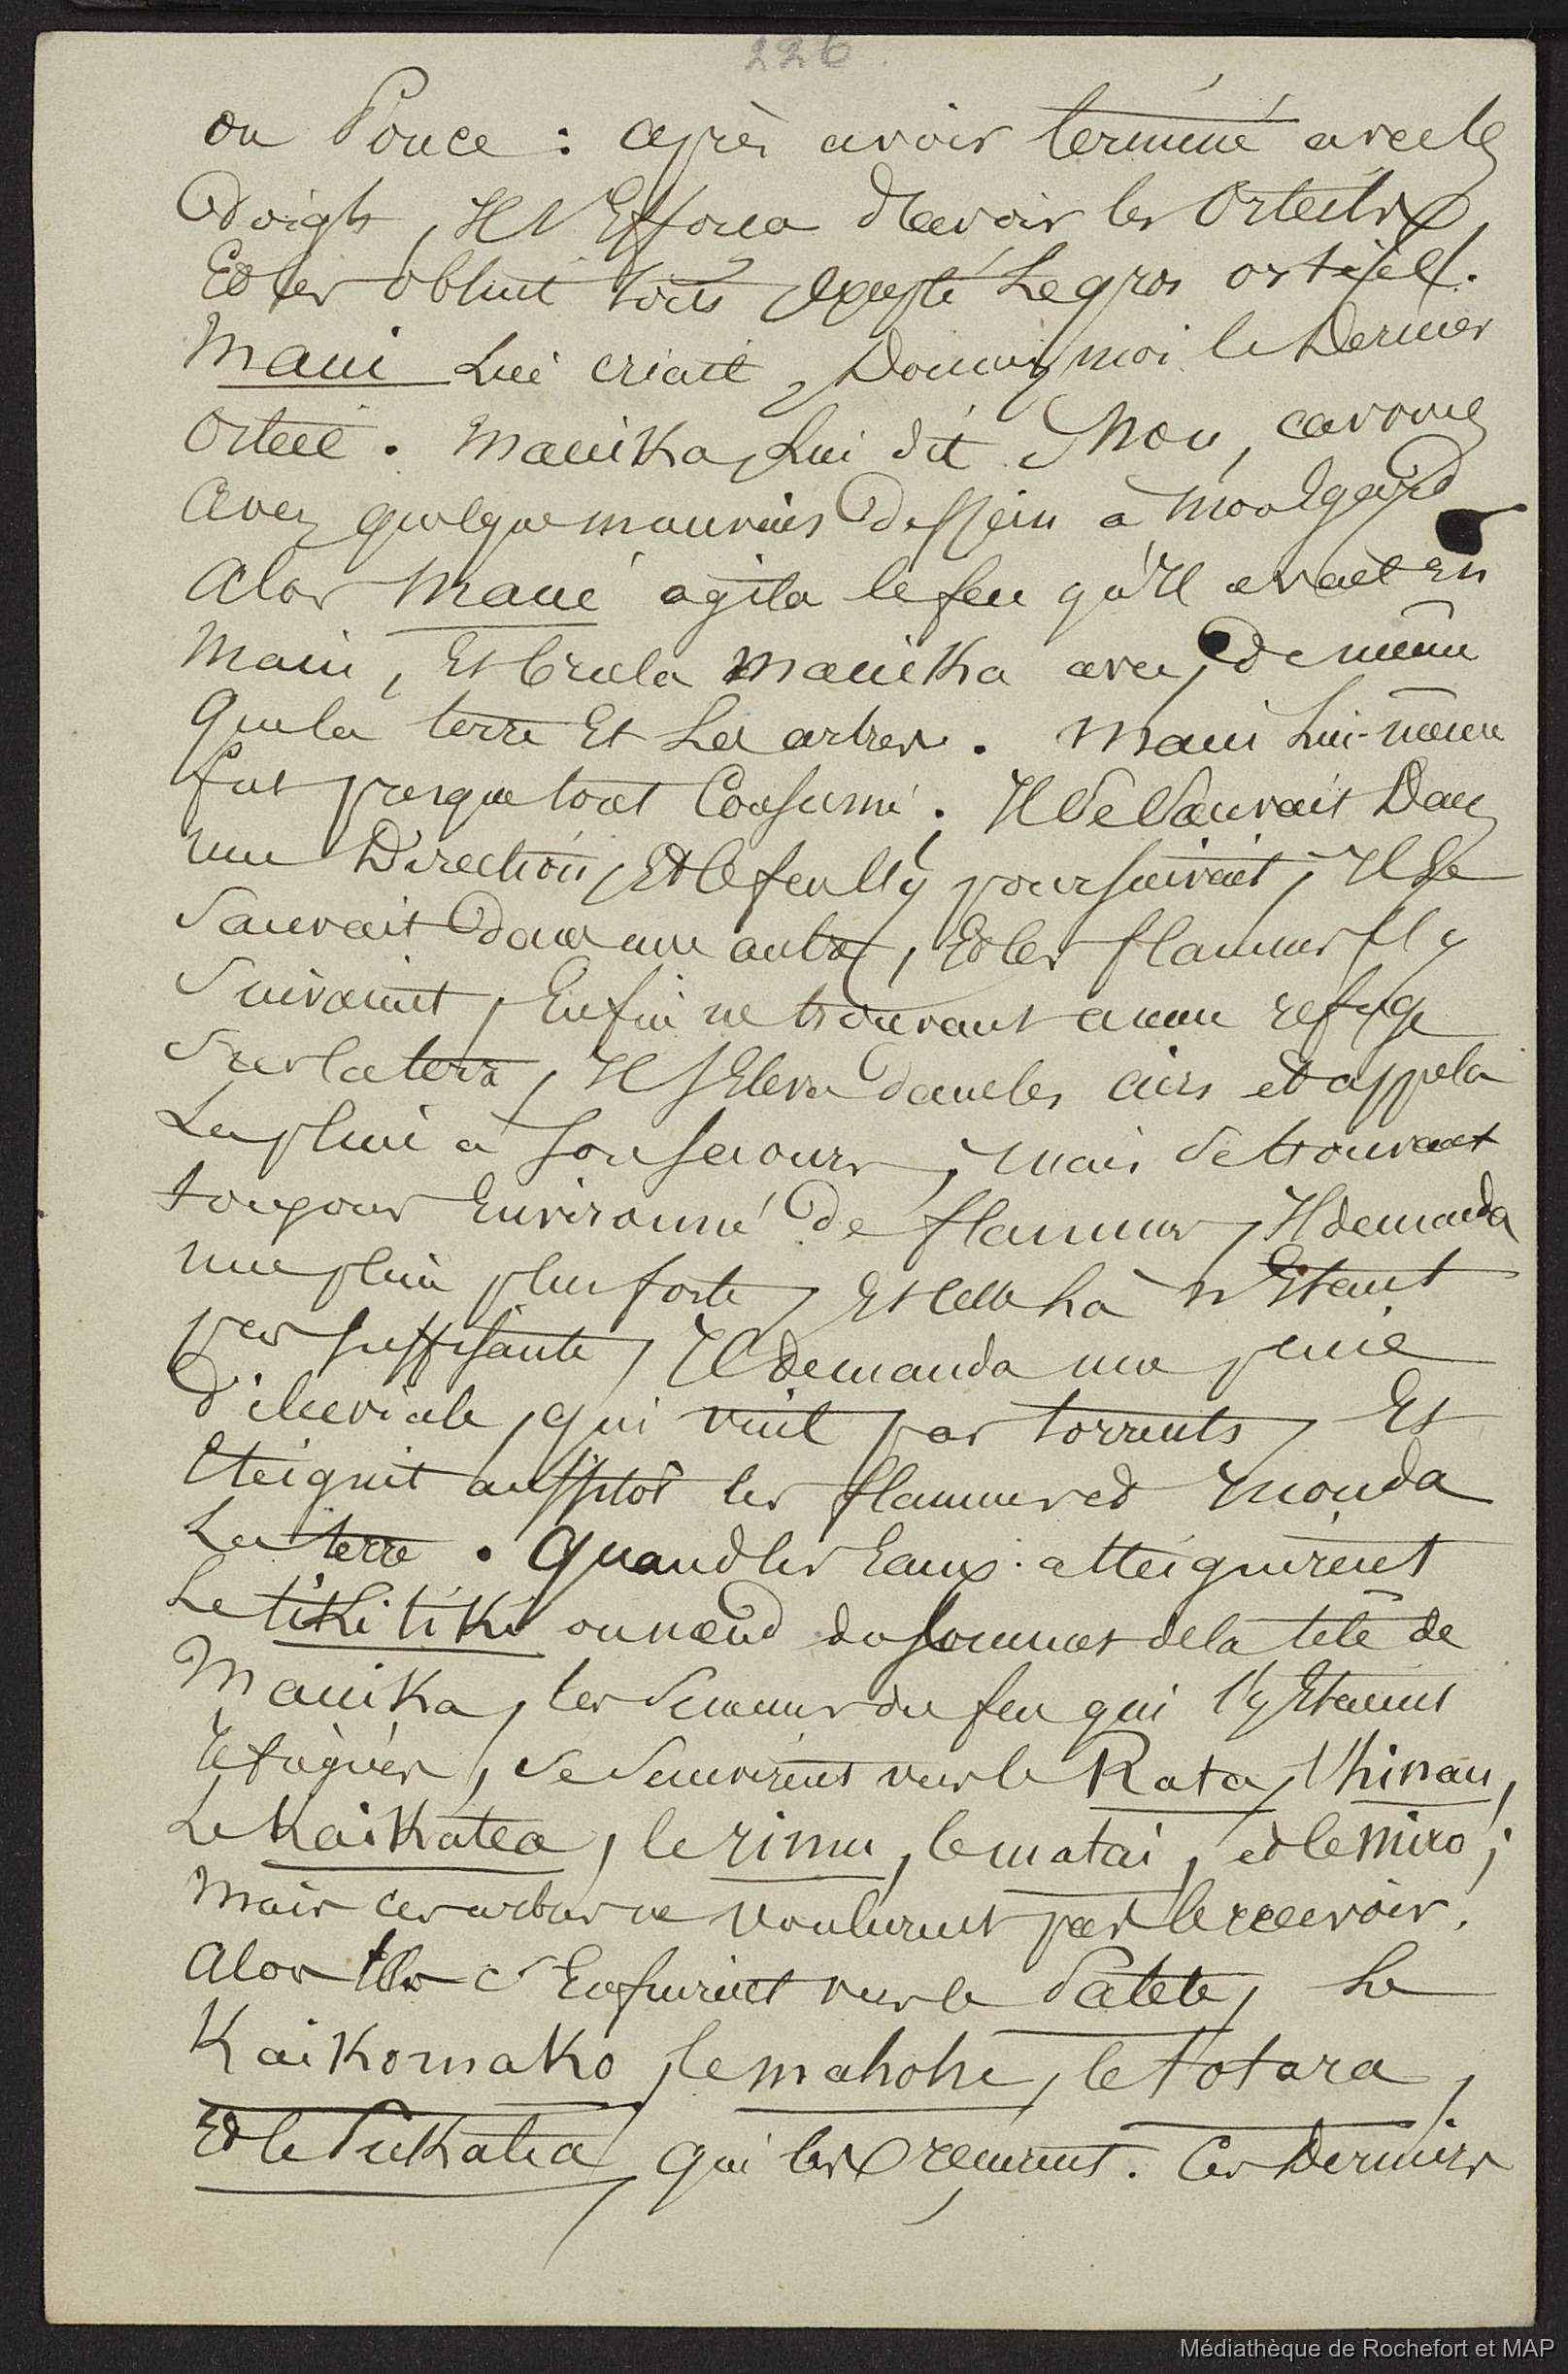 226.
ou Pouce : après avoir terminé avec les
Doigts, Il s'Efforca d'avoir les Orteils,
Et les obtint tous excepté Le gros orteil.
Maui Lui criait, Donnez moi le Dernier
Orteil. Mauika, Lui dit Non, car vous
Avez quelque mauvais Dessein à mon Egard
Alor Maui agita le feu qu'Il avait En
Main, Et brula Mauika avec, de même
Que la terre Et Les arbres. Maui Lui-même
fut presque tout Consumé. Il Se Sauvait Dans
une Direction, Et le feu l'y poursuivait, Il Se
Sauvait Dans une autre, Et les flammes l'y
Suivaient, Enfin ne trouvant aucun refuge
Sur la terre, Il S'Eleva dans les airs et appela
La pluie à Son Secours, mais Se trouvant
toujour Environné De flammes, Il demanda
une pluie plus forte, Et celle Là N'Etant
pas Suffisante, Il demanda une pluie
Diluviale, qui vint par torrents, Et
Eteignit aussitot les flammes et Inonda
La terre. Quand les Eaux atteignirent
Le tikitiki ou nœud du Sommet de la tête de
Mauika, les Semeurs du feu qui l'y Etaient
Réfugiés, Se Sauvèrent vers le Rata, l'hinau,
Le Kaikatea, le rimu, le matai, et le miro;
Mais ces arbres ne voulurent pas les recevoir.
Alor Ils S'Enfuirent vers le Patete, Le
Kaikomako, le mahohe, le totara,
Et le Pukatea, qui les reçurent. Ces Derniers
Médiathèque de Rochefort et MAP